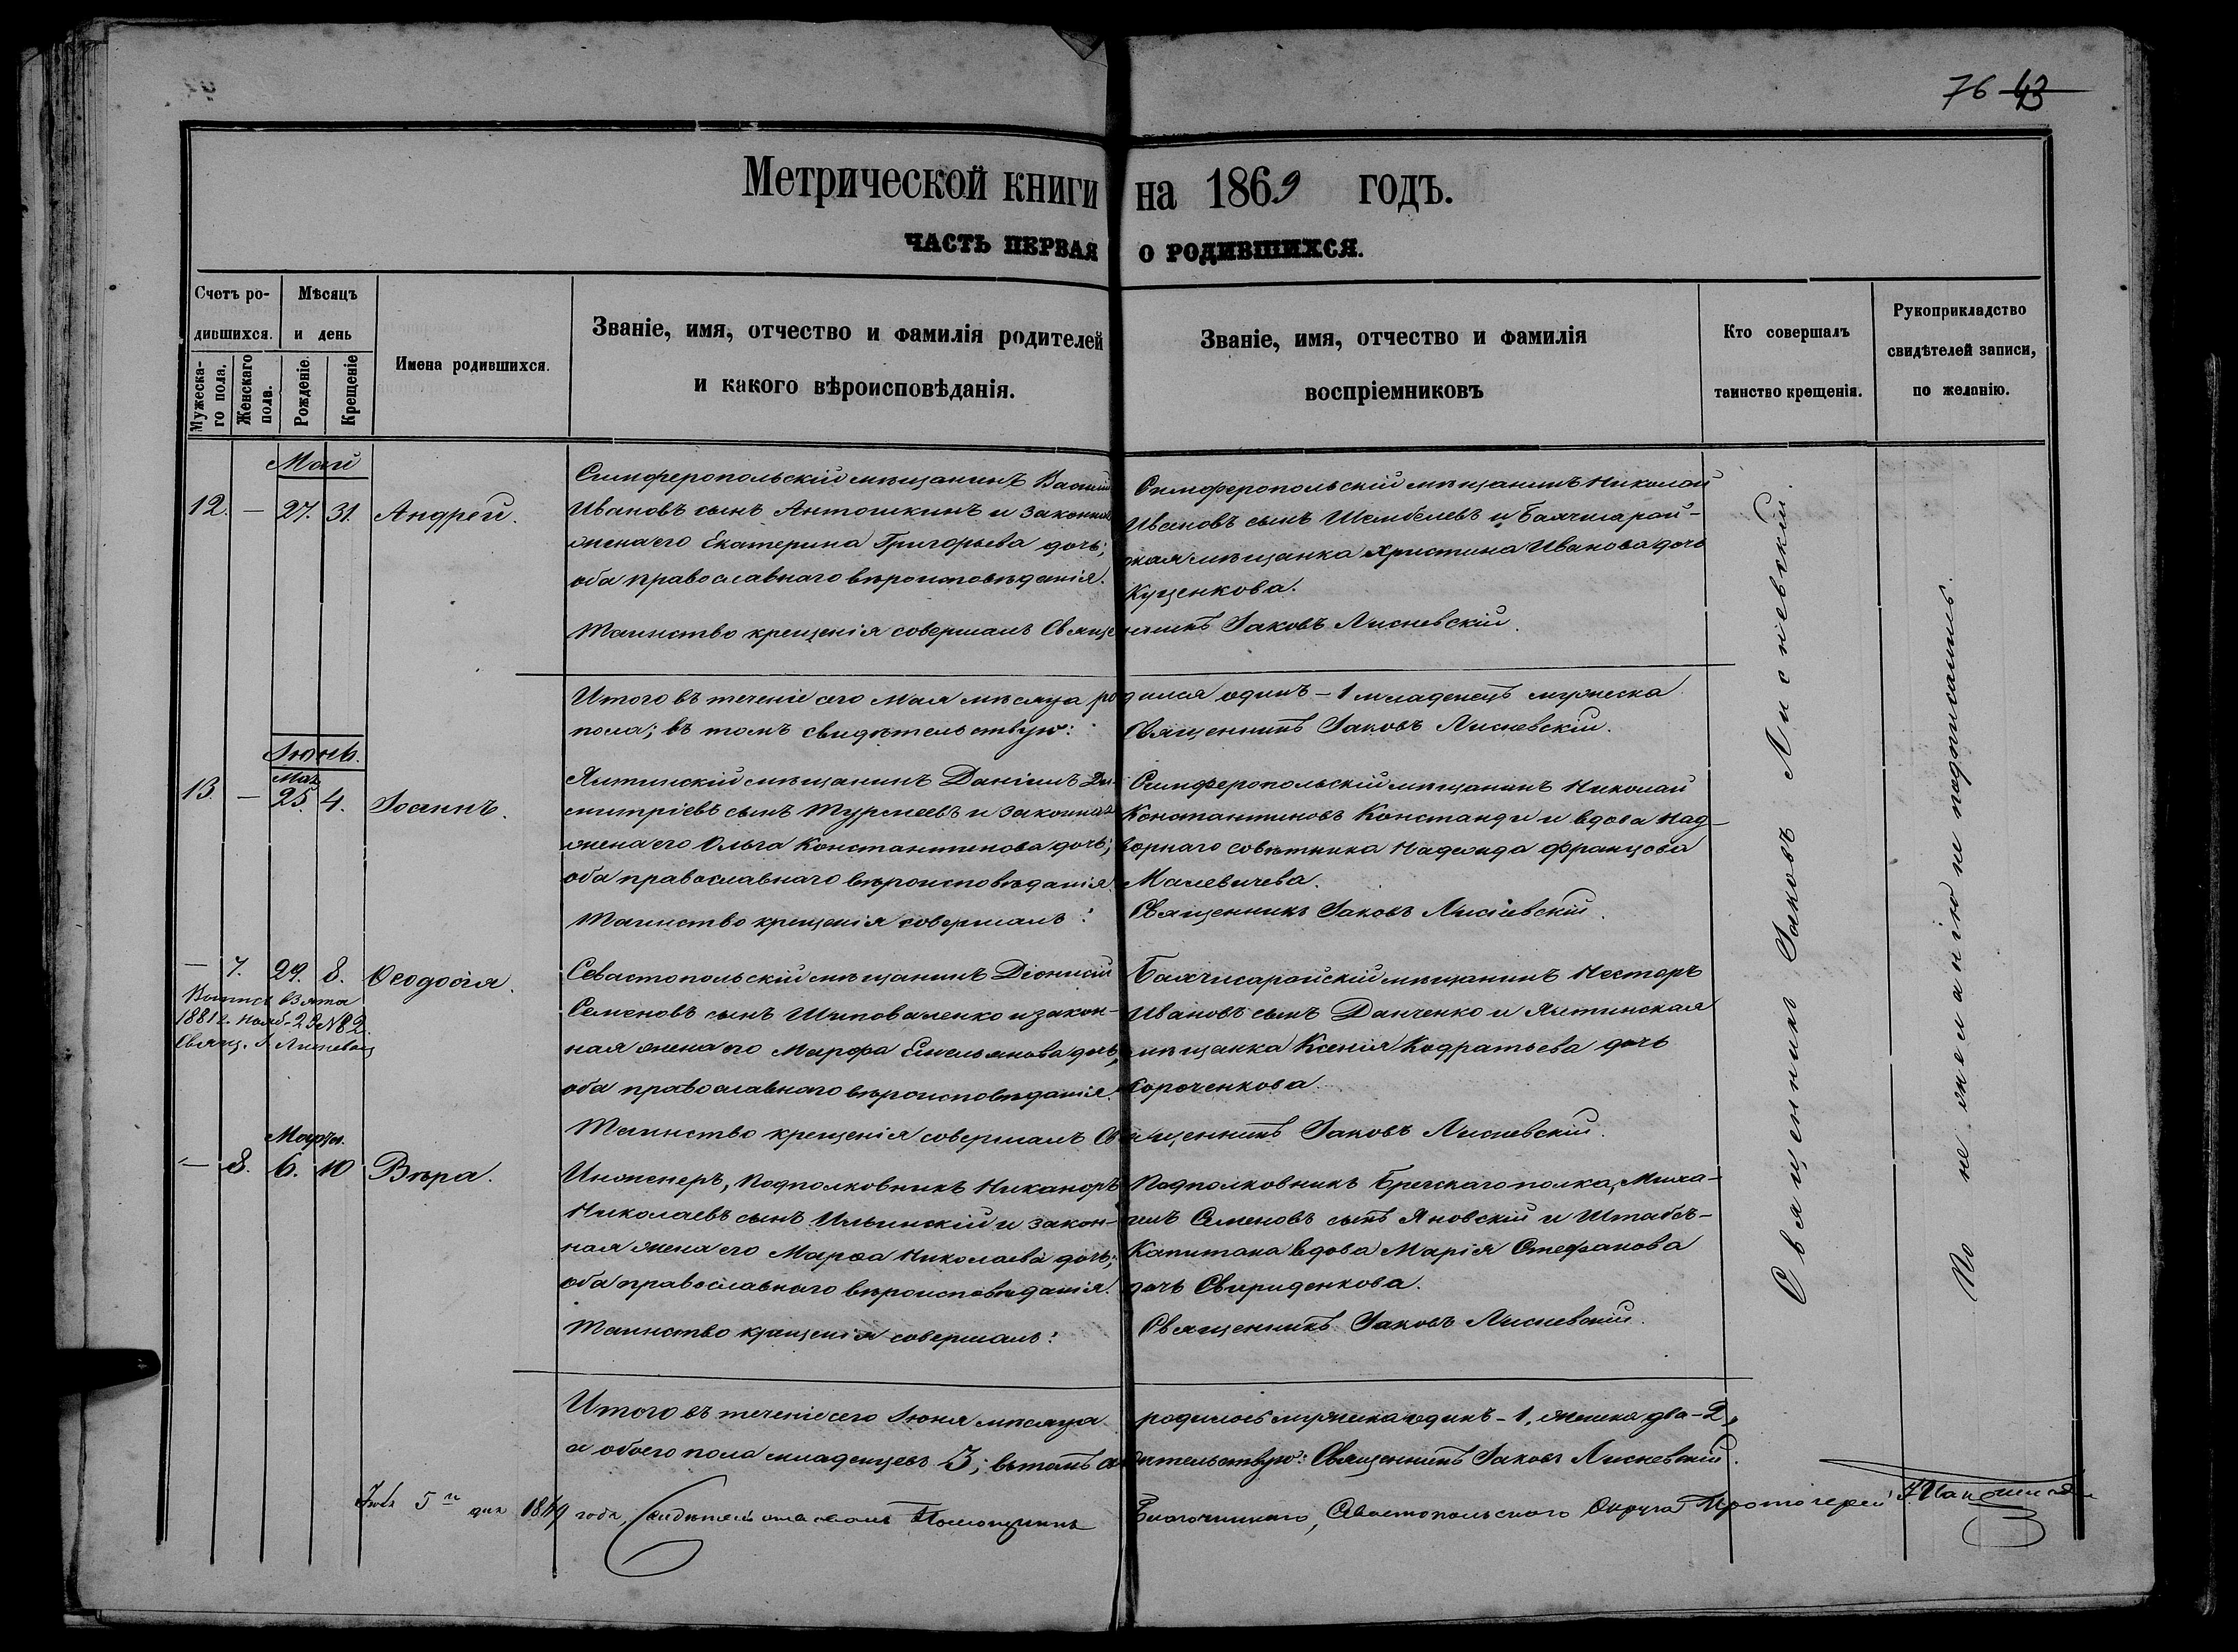 76 43
Метрической книги на 1869 годъ.
ЧАСТЬ ПЕРВАЯ О РОДИВШИХСЯ.
Счетъ ро-
дившихся.
Мужеска-
го пола.
Женскаго
пола.
Мѣсяцъ
и день
Рожденіе.
Крещеніе
Имена родившихся.
Званіе, имя, отчество и фамилія родителей
и какого вѣроисповѣданія.
Званіе, имя, отчество и фамилія
воспріемниковъ
Кто совершалъ
таинство крещенія.
Рукоприкладство
свидѣтелей записи,
по желанію.
Май
12. — 27. 31. Андрей.
Симферопольскій мѣщанинъ Василій
Ивановъ сынъ Антошкинъ и законная
жена его Екатерина Григорьева дочь;
оба православнаго вѣроисповѣданія.
Симферопольскій мѣщанинъ Николай
Ивановъ сынъ Шембелевъ и Бахчисарай-
ская мѣщанка Христина Иванова дочь
Куценкова.
Таинство крещенія совершалъ Священникъ Іаковъ Лисневскій.
Итого въ теченіе сего Мая мѣсяца родился одинъ – 1 младенецъ мужеска
пола; въ томъ свидѣтельствую: Священникъ Іаковъ Лисневскій.
Іюнь.
Мая
13. — 25. 4. Іоаннъ.
Ялтинскій мѣщанинъ Даніилъ Ди-
митріевъ сынъ Турмеевъ и законная
жена его Ольга Константинова дочь;
оба православнаго вѣроисповѣданія.
Таинство крещенія совершалъ:
Симферопольскій мѣщанинъ Николай
Константиновъ Константи и вдова Над-
ворнаго совѣтника Надежда Францова
Малевичева.
Священникъ Іаковъ Лисневскій.
— 7. 29. 8. Ѳеодосія.
взята
1881 г. Нояб. 23 № 82.
Свящ. Я. Лисневскій
Севастопольскій мѣщанинъ Діонисій
Семеновъ сынъ Шиповаленко и закон-
ная жена его Марфа Емельянова дочь,
оба православнаго вѣроисповѣданія.
Бахчисарайскій мѣщанинъ Несторъ
Ивановъ сынъ Данченко и Ялтинская
мѣщанка Ксенія Кодратьева дочь
Сороченкова.
Таинство крещенія совершалъ Священникъ Іаковъ Лисневскій.
Марта.
— 8. 6. 10 Вѣра.
Инженеръ, Подполковникъ Никаноръ
Николаевъ сынъ Ильинскій и закон-
ная жена его Марѳа Николаева дочь;
оба православнаго вѣроисповѣданія.
Таинство крещенія совершалъ:
Подполковникъ Брестскаго полка, Миха-
илъ Семеновъ сынъ Яновскій и Штабсъ-
Капитана вдова Марія Стефанова
дочь Свириденкова.
Священникъ Іаковъ Лисневскій.
Итого въ теченіе сего Іюня мѣсяца родилось мужеска одинъ – 1, женска два – 2,
а обоего пола младенцевъ 3; въ томъ свидѣтельствую: Священникъ Іаковъ Лисневскій.
5го дня 1869 года, Помощникъ Благочиннаго, Севастопольскаго Округа Протоіерей
Священникъ Іаковъ Лисневскій.
По желанію не подписались.